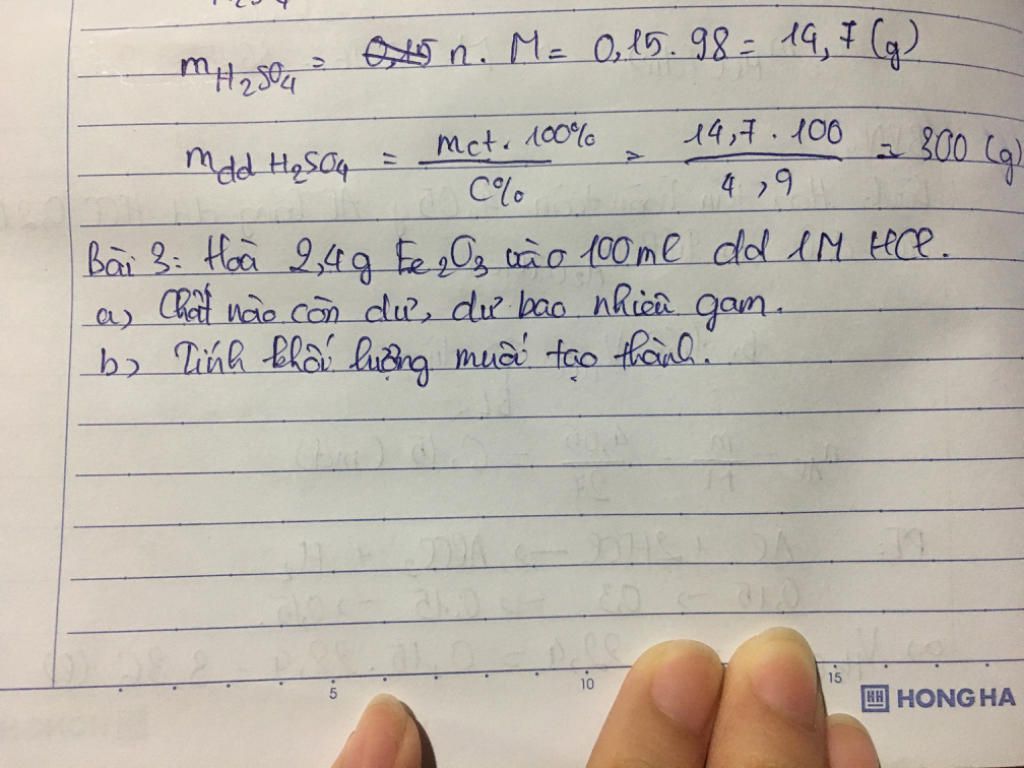 m H₂SO₄ = n . M = 0,15 . 98 = 14,7 (g)
m dd H₂SO₄ = mct . 100% / C% = 14,7 . 100 / 4,9 = 300 (g)
Bài 3: Hoà 2,4g Fe₂O₃ vào 100ml dd 1M HCl.
a) Chất nào còn dư, dư bao nhiêu gam.
b) Tính khối lượng muối tạo thành.
5 10 15
HH HONG HA